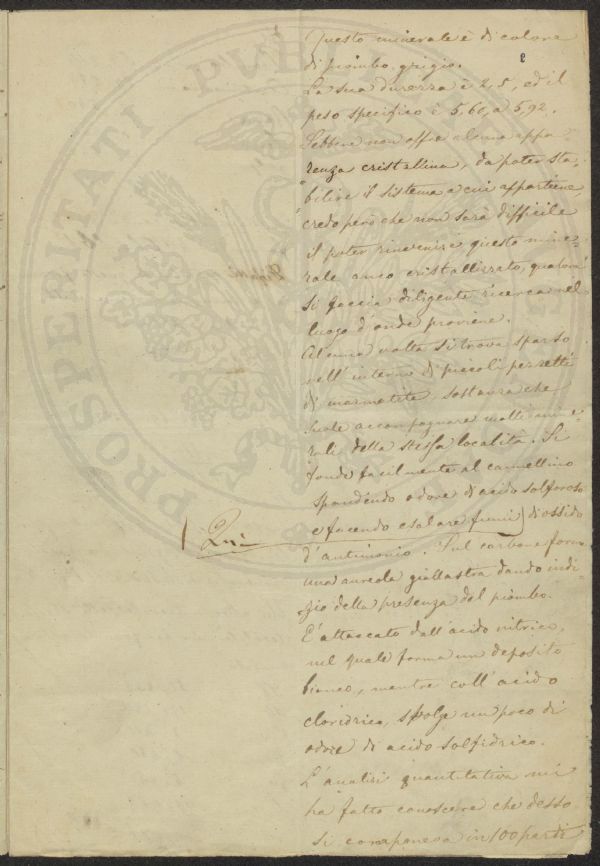 2
Questo minerale è di colore
di piombo grigio.
La sua durezza è 2,5, ed il
peso specifico è 5,60, a 5,92.
Sebbene non offra alcuna appa-
renza cristallina, da poter sta-
bilire il sistema a cui appartiene,
credo però che non sarà difficile
il poter rinvenire questo mine-
rale anco cristallizzato, qualora
si faccia diligente ricerca nel
luogo d'onde proviene.
Alcuna volta si trova sparso
nell'interno di piccoli pezzetti
di marmatite, sostanza che
suole accompagnare molti mine-
rali della stessa località. Si
fonde facilmente al cannellino
spandendo odore di acido solforoso
e facendo esalare fumi di ossido
d'antimonio. Sul carbone forma
una aureola giallastra dando indi-
zio della presenza del piombo.
E' attaccato dall'acido nitrico,
nel quale forma un deposito
bianco, mentre coll'acido
cloridrico, svolge un poco di
odore di acido solfidrico.
L'analisi quantitativa mi
ha fatto conoscere che desso
si componeva in 100 parti
PROSPERITATI PVBL